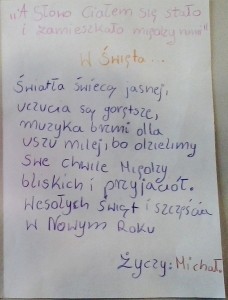 „A Słowo Ciałem się stało
i zamieszkało między nami"
W Święta...
Światła świecą jaśniej,
uczucia są gorętsze,
muzyka brzmi dla
uszu milej, bo dzielimy
swe chwile Między
bliskich i przyjaciół.
Wesołych Świąt i szczęścia
w Nowym Roku
Życzy: Michał.